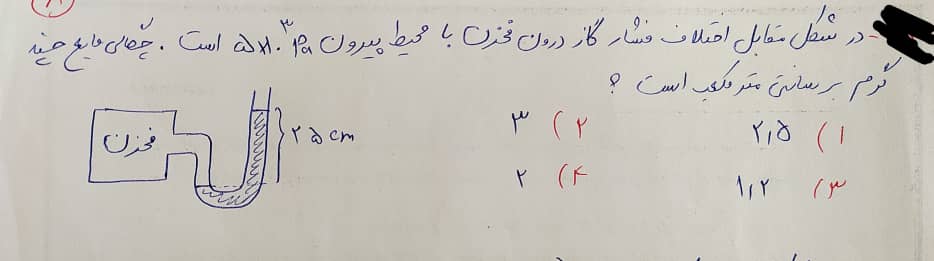 - در شکل مقابل اختلاف فشار گاز درون مخزن با محیط بیرون ۵×۱۰^۳ Pa است . چگالی مایع چند
گرم بر سانتی متر مکعب است ؟
۱) ۲٫۵ ۲) ۳
۳) ۱٫۲ ۴) ۲
مخزن
۲۵ cm